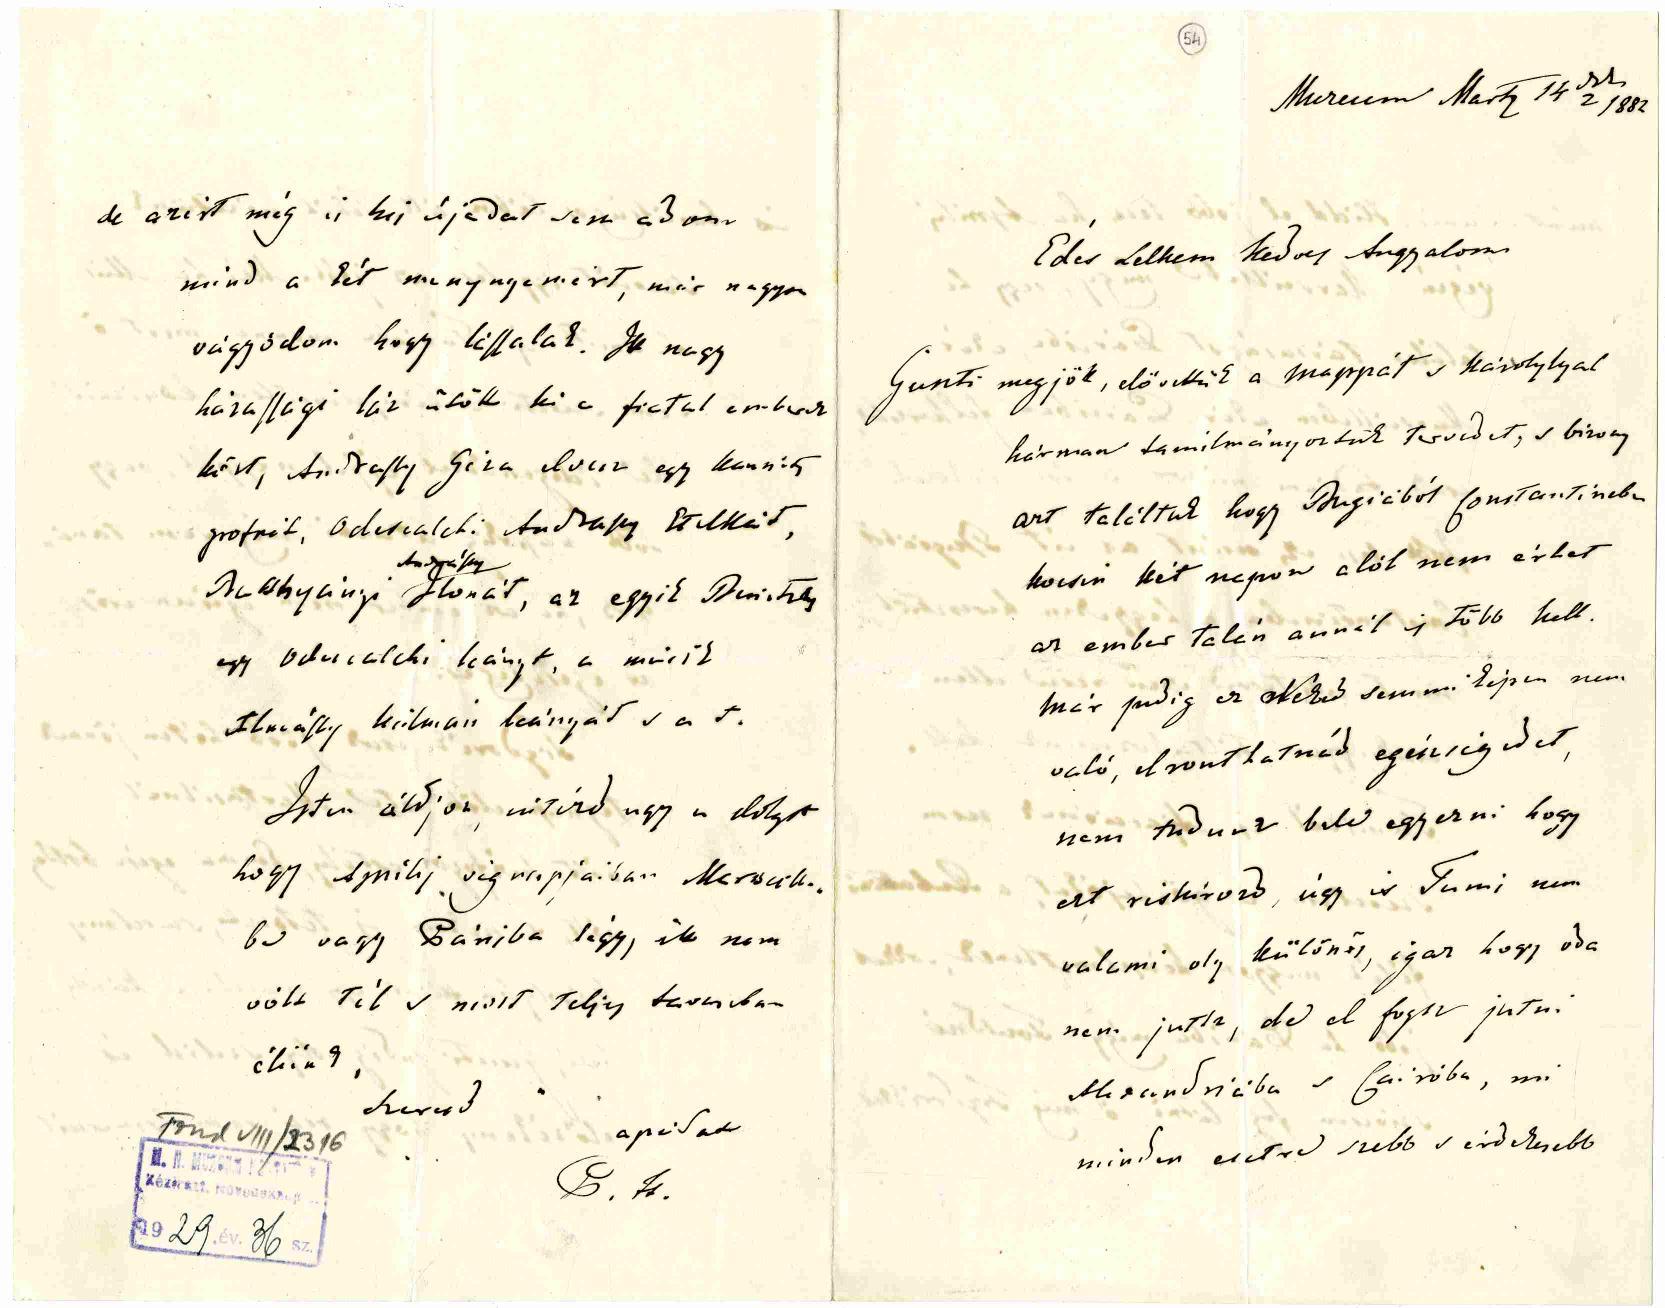 54
Muzeum Martz 14 1882
Édes Lelkem kedves Angyalom
Guszti megjök, elővettük a mappát s Károlylyal
hárman tanulmányoztuk tervedet, s bizony
azt találtuk hogy Bugiából Constantineba
kocsin két napon alól nem érhet
az ember talán annál is több kell.
Már pedig ez Néked semmiképen nem
való, elronthatnád egészségedet,
nem tudunk bele egyezni hogy
ezt riskirozd, úgy is Tunis nem
valami oly különös, igaz hogy oda
nem jutsz, de el fogsz jutni
Alexandriába s Cairóba, mi
minden esetre szebb s érdekesebb
de azért még is kis újadat sem adom
mind a két menyngemért, már nagyon
vágyódom hogy lássalak. Itt nagy
házassági láz ütött ki a fiatal emberek
közt, Andrássy Géza elvesz egy Kaunitz
grófnét, Odescalchi Andrássy Etelkát,
Batthyányi Andrássy Ilonát, az egyik
egy Odescalchi leányt, a másik
Almássy Kálmán leányát s a t.
Isten áldjon, intézd ugy a dolgot
hogy Aprilis végnapjaiban
be vagy Párisba légy, itt nem
volt tél s most teljes tavaszban
élünk,
szerető
apádat
P. F.
Fond VIII/2316
Kézirat. Növedéknapló
1929. év. 36 sz.